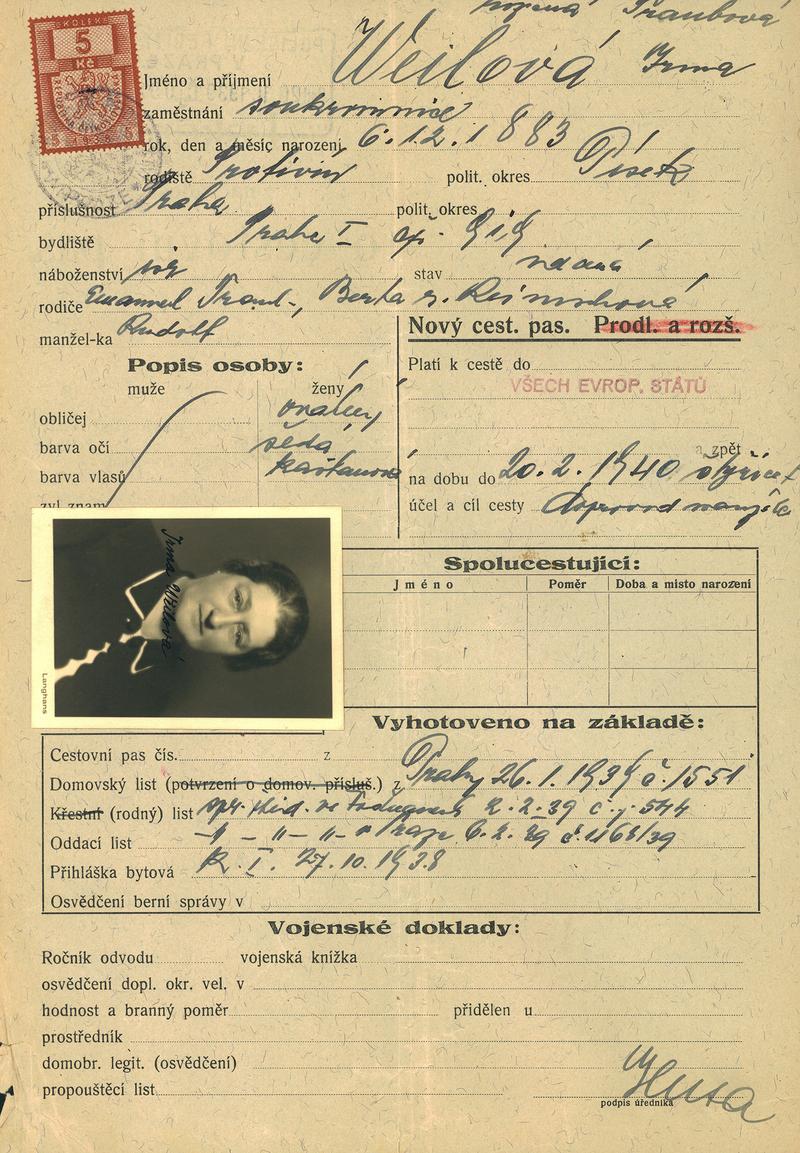 rozená Traubová
KOLEK
5
Kč
Jméno a příjmení Weilová Irma
zaměstnání soukromnice
rok, den a měsíc narození 6.12.1883
rodiště Protivín polit. okres Písek
příslušnost Praha polit. okres
bydliště Praha I čp.
náboženství stav vdaná
rodiče Emanuel Traub, Berta r.
manžel-ka Rudolf
Nový cest. pas. Prodl. a rozš.
Popis osoby:
Platí k cestě do
VŠECH EVROP. STÁTŮ
muže ženy
obličej oválný
barva očí šedá
barva vlasů kaštanová
a zpět
na dobu do 20.2.1940
zvl. znam.
účel a cíl cesty doprovod manžela
Irma Weilová
Langhans
Spolucestující:
Jméno Poměr Doba a misto narození
Vyhotoveno na základě:
Cestovní pas čís. z
Domovský list (potvrzení o domov. přísluš.) z Prahy 26.1.1939 č. 1551
Křestní (rodný) list 2.2.39 č.j. 544
Oddací list -"- -"- -"- v Praze 6.2.39
Přihláška bytová R. I. 27.10.1938
Osvědčení berní správy v
Vojenské doklady:
Ročník odvodu vojenská knížka
osvědčení dopl. okr. vel. v
hodnost a branný poměr přidělen u
prostředník
domobr. legit. (osvědčení)
propouštěcí list
podpis úředníka